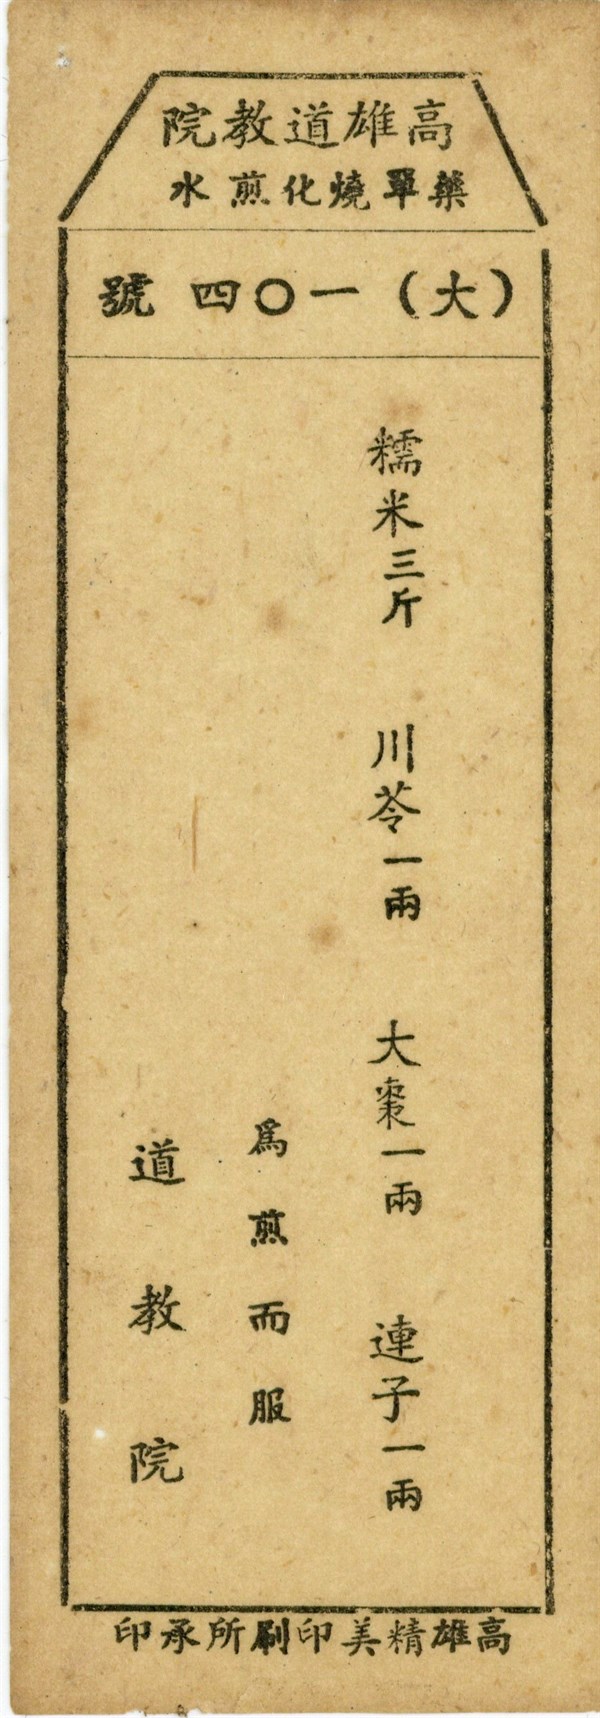 高雄道教院
藥單燒化煎水
（大）一〇四號
糯米三斤 川芩一兩 大棗一兩 連子一兩
為煎而服
道教院
高雄精美印刷所承印